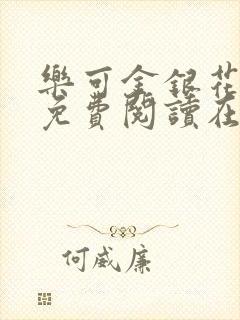 樂可金銀花
免費閱讀在
何威廉